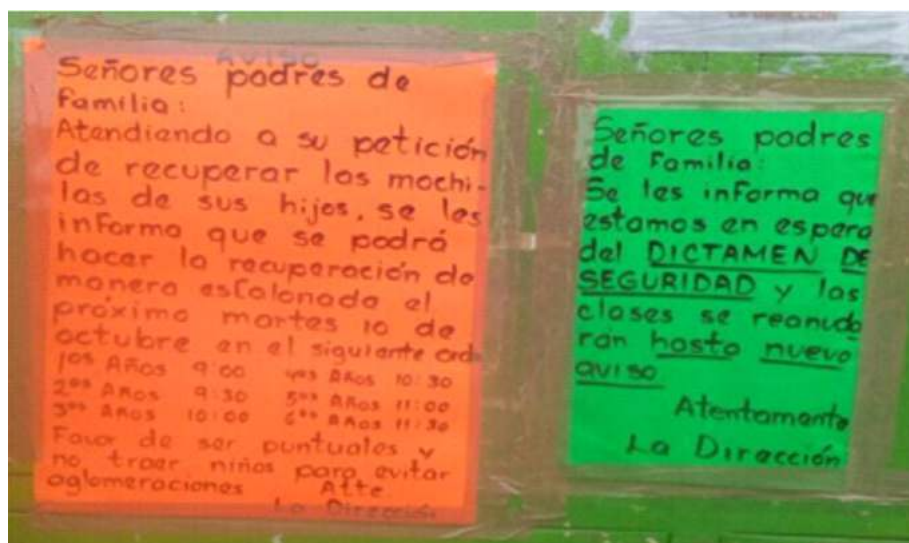 AVISO
Señores padres de
familia:
Atendiendo a su petición
de recuperar las mochi-
las de sus hijos, se les
informa que se podrá
hacer la recuperación de
manera escalonada el
próximo martes 10 de
octubre en el siguiente ord
1os Años 9:00 4os Años 10:30
2os Años 9:30 5os Años 11:00
3os Años 10:00 6os Años 11:30
Favor de ser puntuales y
no traer niños para evitar
aglomeraciones Atte
La Dirección
LA DIRECCIÓN
Señores padres
de familia:
Se les informa que
estamos en espera
del DICTAMEN DE
SEGURIDAD y las
clases se reanuda
rán hasta nuevo
aviso
Atentamente
La Dirección